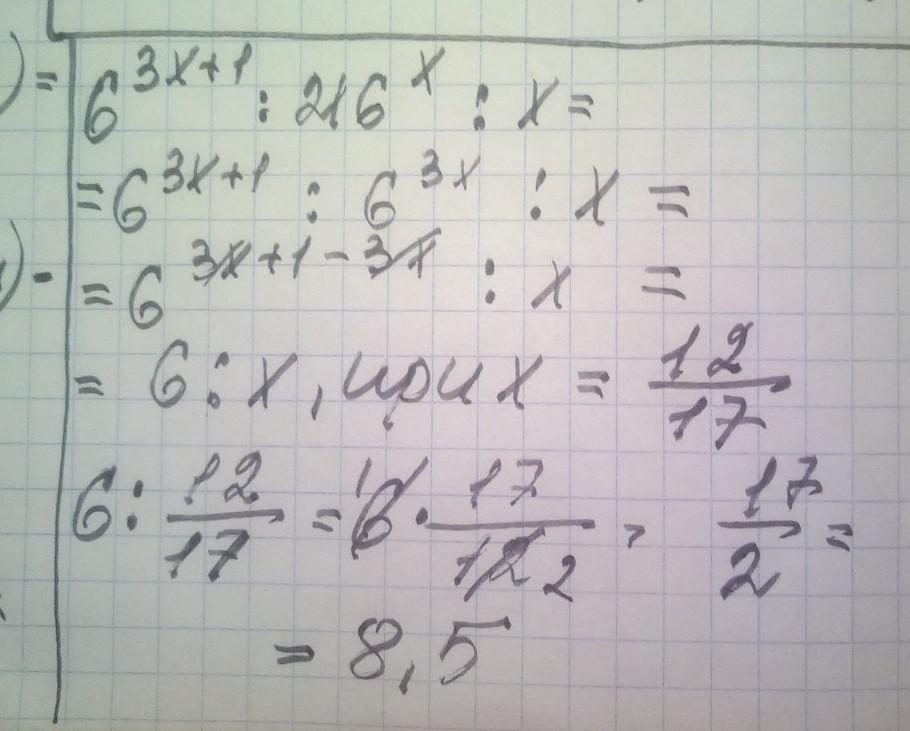 ) = 6^{3x+1} : 216^x : x =
= 6^{3x+1} : 6^{3x} : x =
= 6^{3x+1-3x} : x =
= 6 : x, при x = \frac{12}{17}
6 : \frac{12}{17} = 6 1 · \frac{17}{12 2} = \frac{17}{2} =
= 8,5